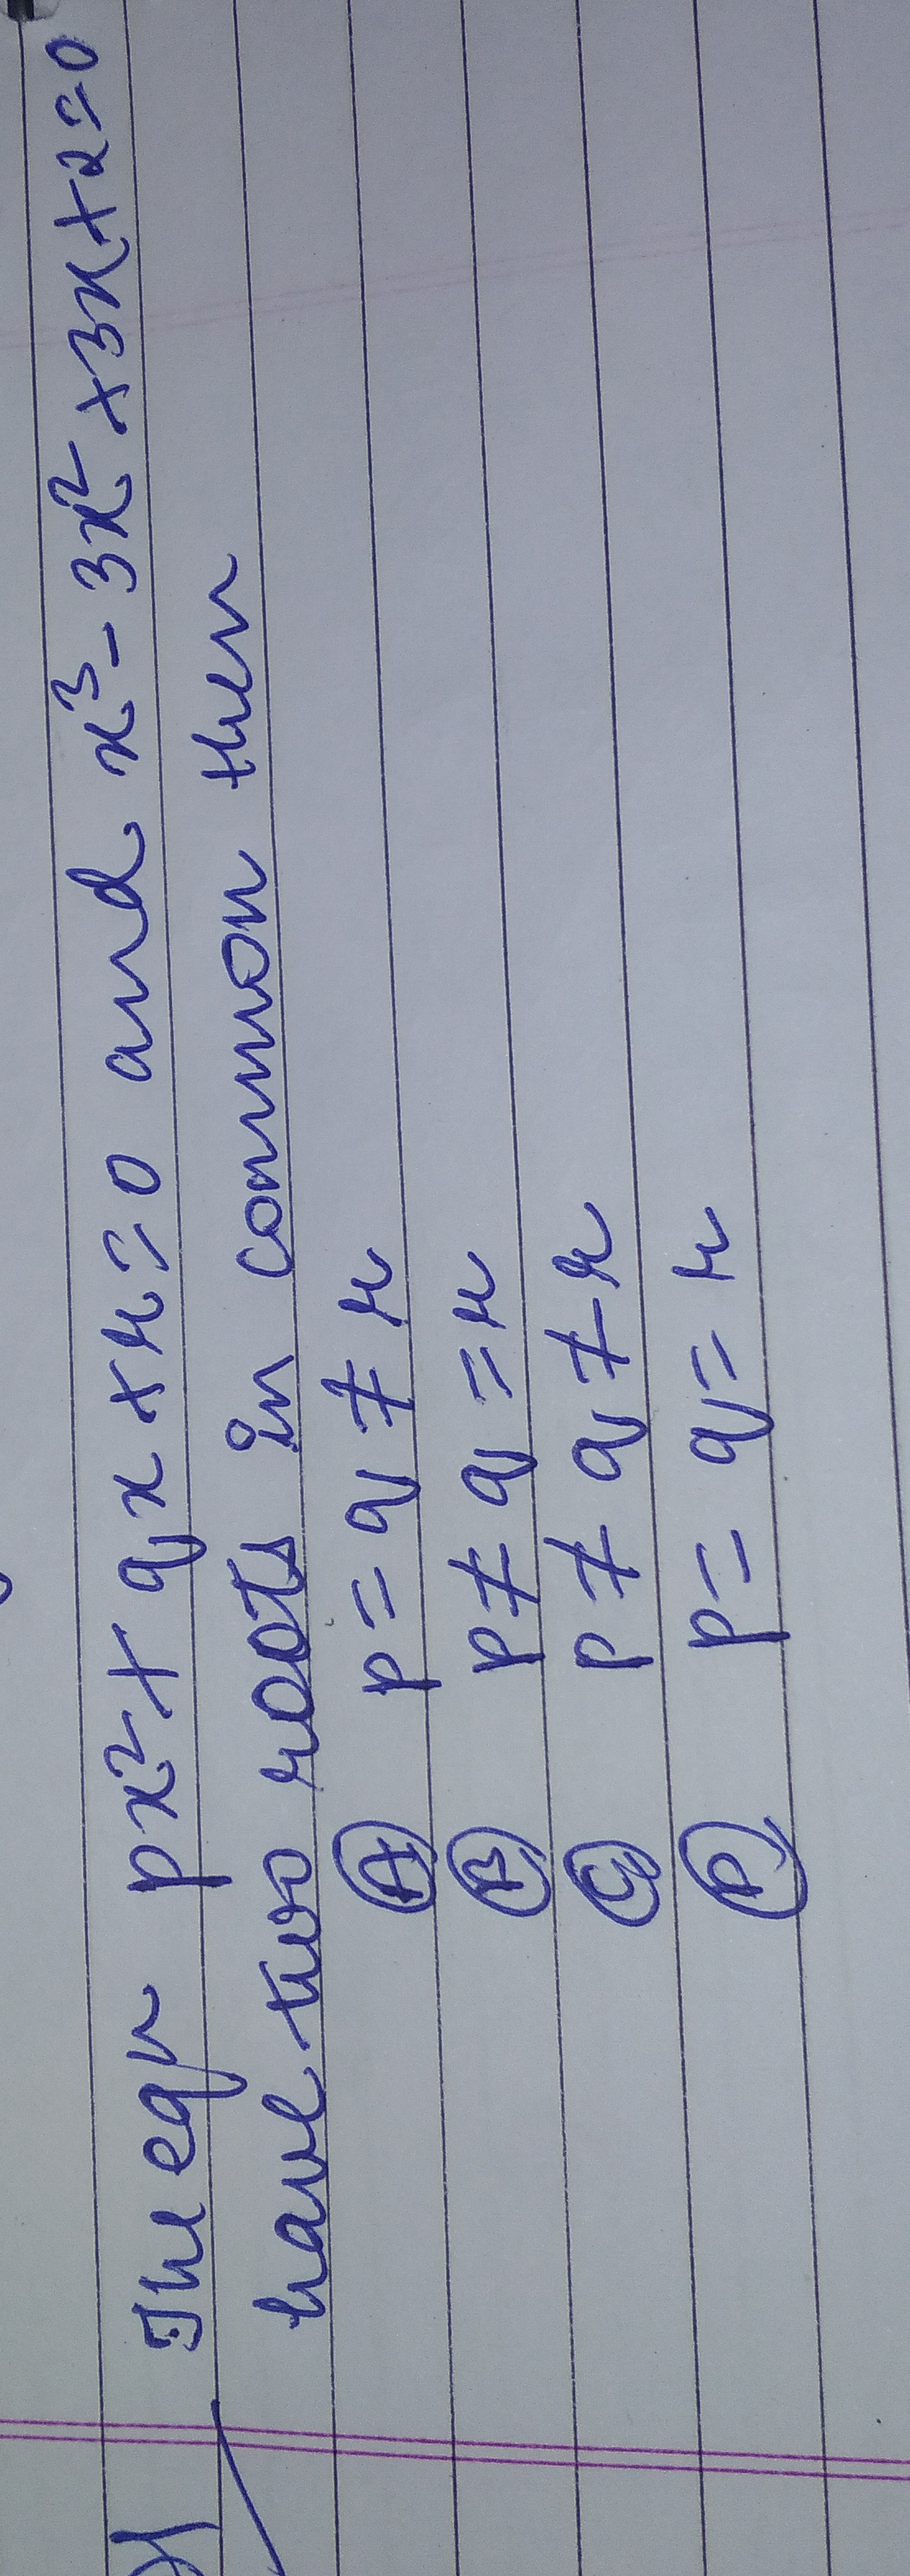 The eqn px² + qx + r = 0 and x³ - 3x² + 3x + 2 = 0
have two roots in common then
(A) p = q ≠ r
(B) p ≠ q = r
(C) p ≠ q ≠ r
(D) p = q = r